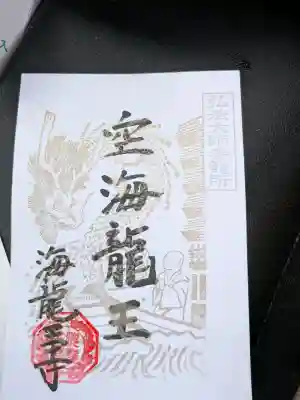 弘法大師霊跡所
空海龍王
海龍王寺